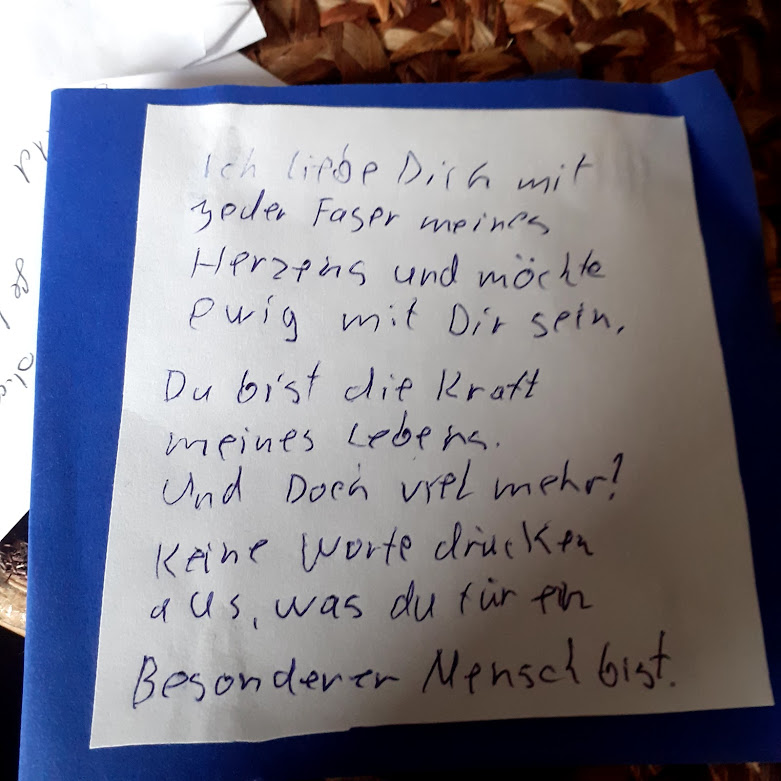 Ich liebe Dich mit
jeder Faser meines
Herzens und möchte
ewig mit Dir sein.
Du bist die Kraft
meines Lebens.
Und Doch viel mehr!
Keine Worte drücken
aus, was du für ein
Besonderer Mensch bist.